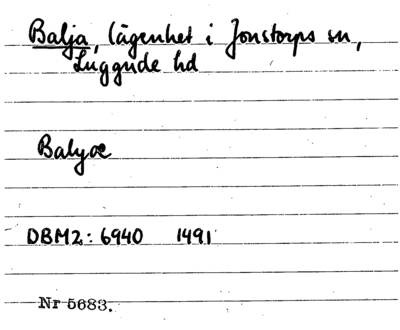 Balja, lägenhet i Jonstorps sn,
Luggude hd
Balyæ
DBM2: 6940 1491
Nr 5683.